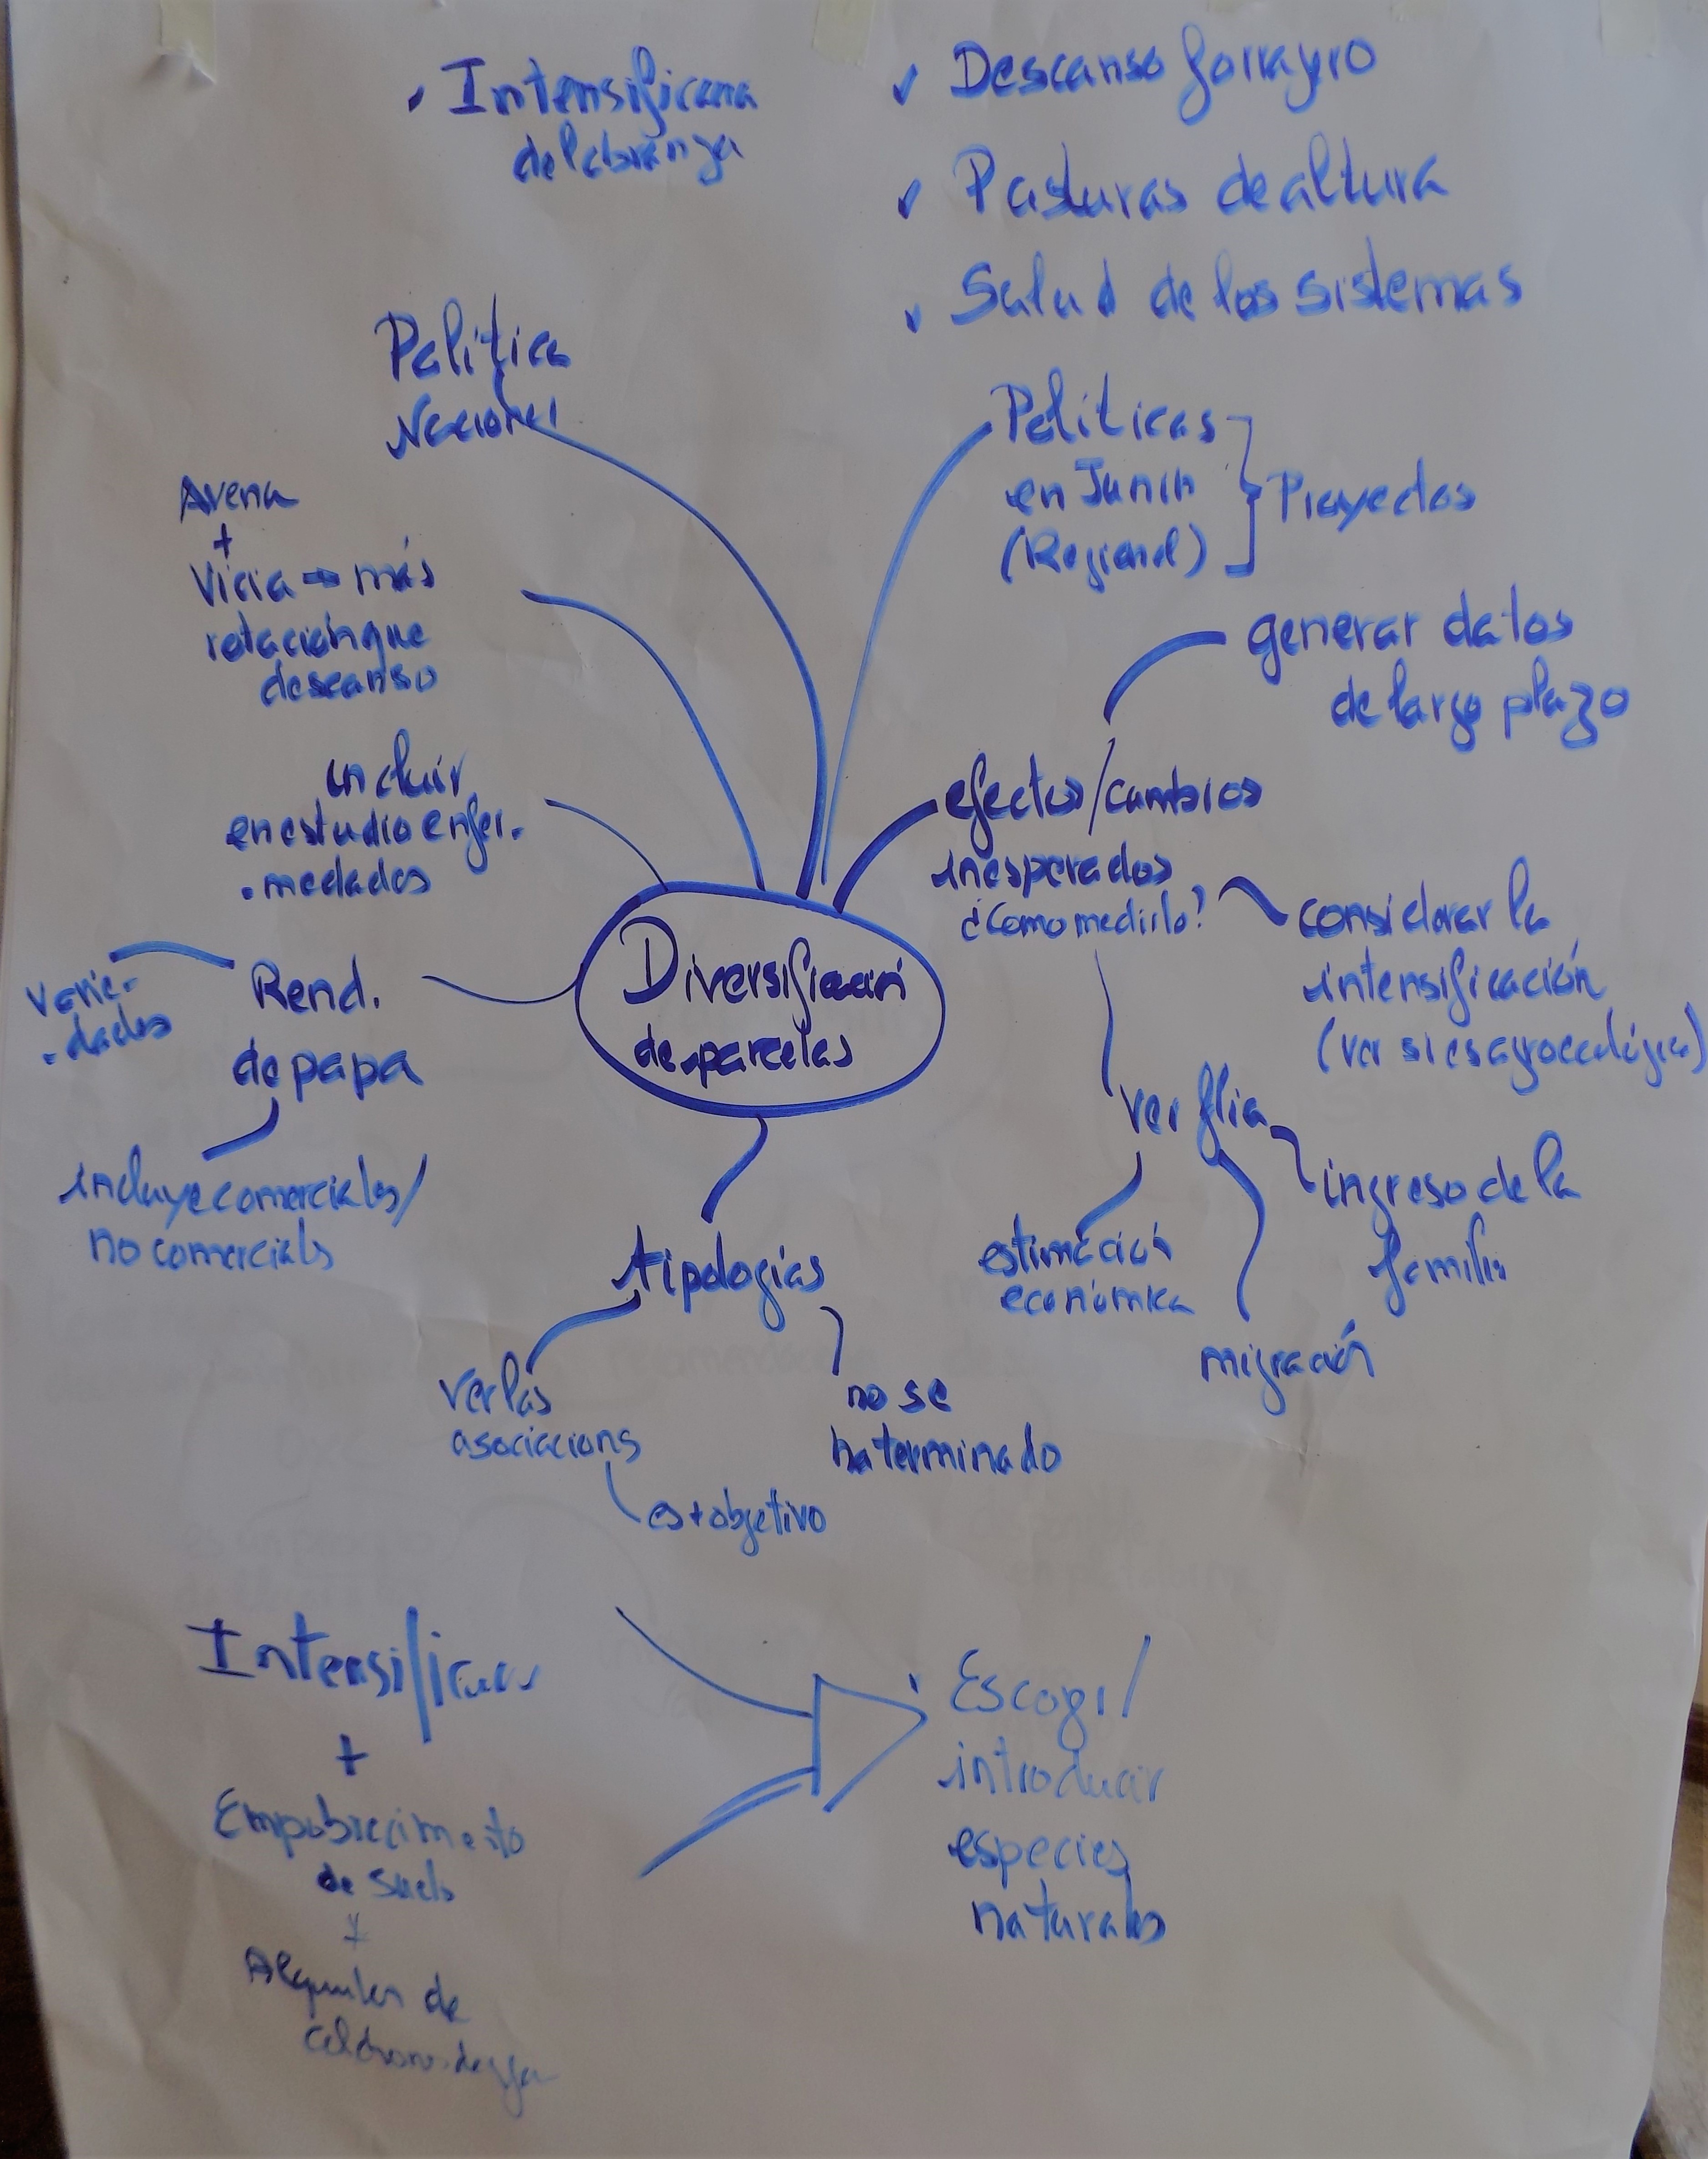 Intensificana
de labranza
✓ Descanso forrajero
✓ Pasturas de altura
✓ Salud de los sistemas
Política
Nacional
Políticas
en Junín
(Regional)
Proyectos
Avena
+
Vicia → más
rotación que
descanso
generar datos
de largo plazo
incluir
en estudio enfer-
-medades
efectos/cambios
inesperados
¿Como medirlo?
considerar la
intensificación
(ver si es agroecológica)
Diversificación
de parcelas
Rend.
de papa
varie-
-dades
incluye comerciales/
no comerciales
ver flia
ingreso de la
familia
estimación
económica
migración
tipologías
ver las
asociacions
es + objetivo
no se
ha terminado
+
Empobrecimiento
de suelo
Alquiler de
Escogi/
introducir
especies
naturales